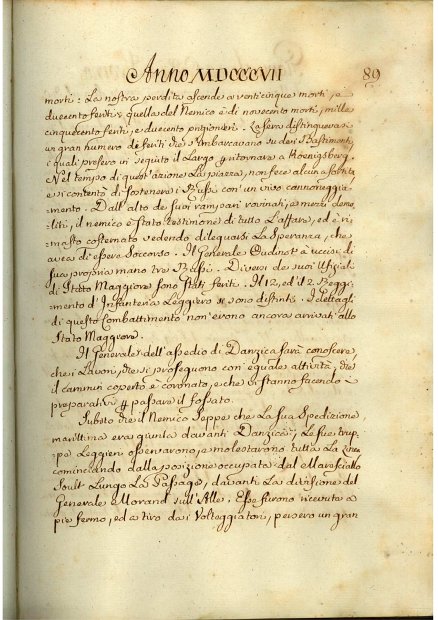 Anno MDCCCVII
89
morti: La nostra perdita ascende a venticinque morti, e
duecento feriti; quella del Nemico è di novecento morti, mille
cinquecento feriti, e duecento prigionieri. La sera distinguevasi
un gran numero di feriti che s'imbarcavano su dei Bastimenti,
i quali presero in seguito il Largo p ritornare a Koenigsberg.
Nel tempo di quest'azione La piazza, non fece alcuna sortita
e si contentò di sostenere i Russi con un vivo cannoneggia=
=mento. Dall'alto de suoi rampari rovinati, e mezzi demo=
liti, il nemico è stato testimone di tutto L'affare, ed è ri=
masto costernato vedendo dileguarsi La Speranza, che
avea di essere Soccorso. Il Generale Oudinot à uccisi di
sua propria mano tre Russi. Diversi de suoi Uffiziali
di Stato Maggiore sono stati feriti. Il 12, ed il 2 Reggi=
mento d'Infanteria Leggiera si sono distinti. I dettagli
di questo Combattimento non erono ancora arrivati allo
Stato Maggiore.
Il Generale dell'assedio di Danzica farà conoscere,
che i Lavori, che si proseguono con eguale attività, che
il cammin coperto è coronato, e che si stanno facendo i
preparativi p passare il fossato.
Subito che il Nemico seppe che La sua Spedizione
marittima era giunta davanti Danzica, Le sue trup=
pe Leggieri osservarono, e molestarono tutta La Linea
cominciando dalla posizione occupata dal Maresciallo
Soult Lungo La Passage, davanti La divisione del
Generale Morand sull'Alle. Esse furono ricevute a
piè fermo, ed a tiro dai Volteggiatori, persero un gran